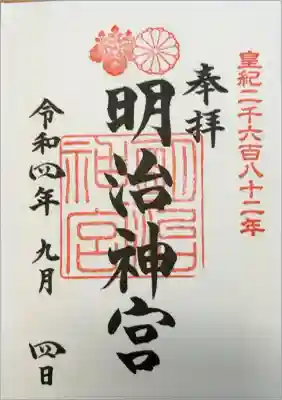 皇紀二千六百八十二年
奉拝
明治神宮
明治神宮
令和四年 九月 四日